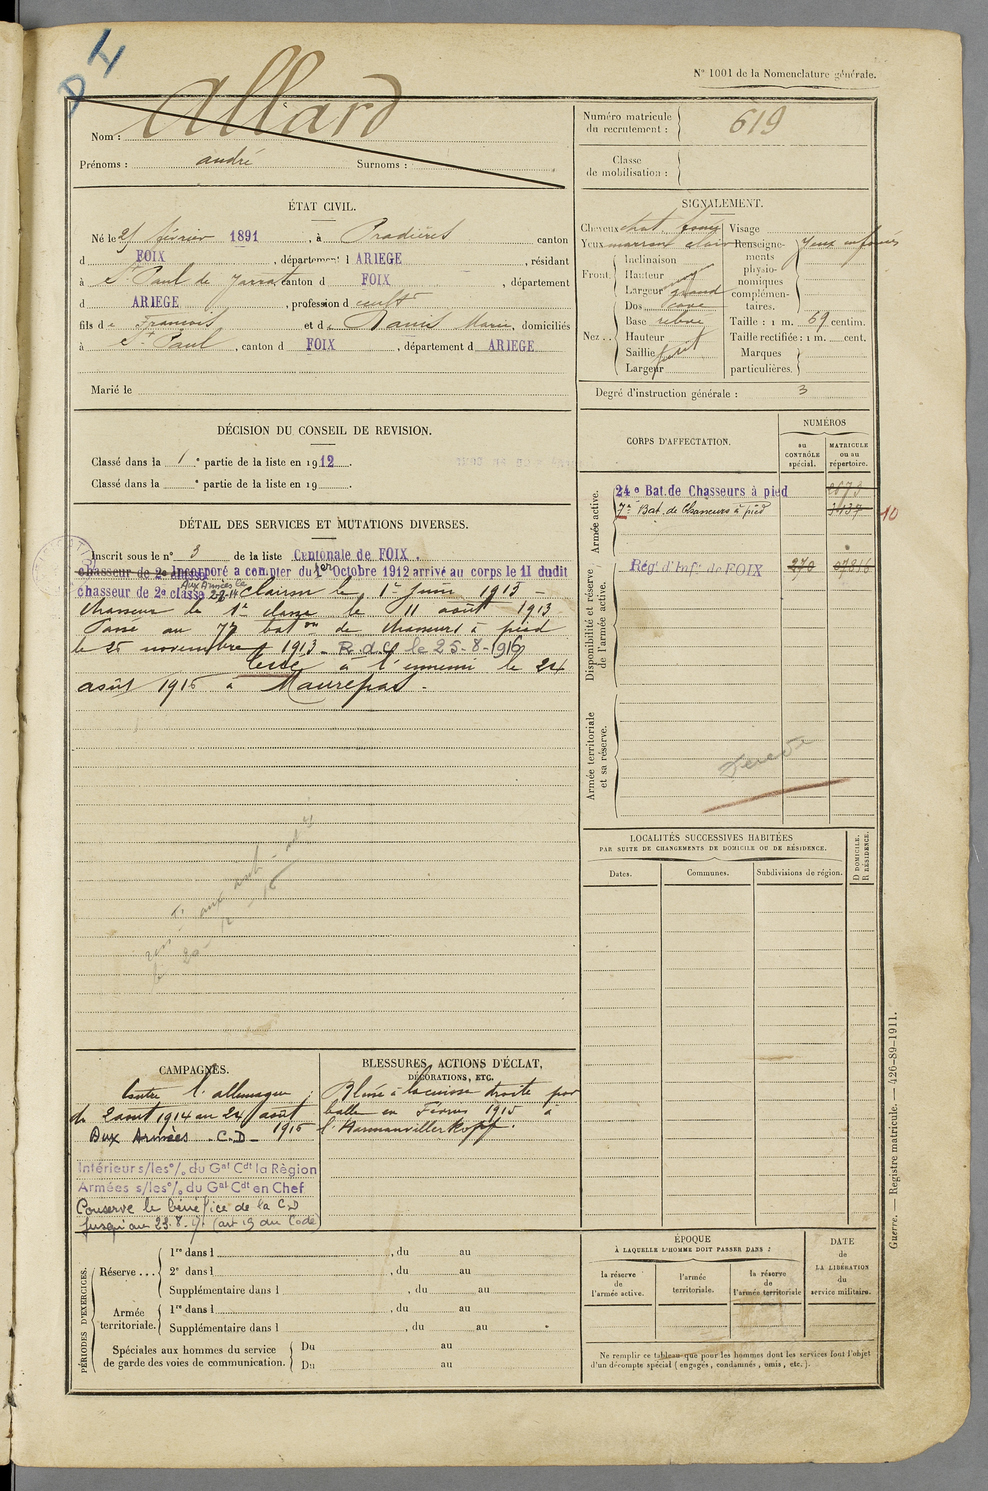 N° 1001 de la Nomenclature générale.
Nom : Allard
Prénoms : andré Surnoms :
Numéro matricule du recrutement : 619
Classe de mobilisation :
ÉTAT CIVIL.
Né le 25 février 1891, à Pradières canton
d FOIX, département d ARIEGE, résidant
à St Paul de Jarrat canton d FOIX, département
d ARIEGE, profession d cultr
fils de François et de Marie, domiciliés
à St Paul, canton d FOIX, département d ARIEGE
Marié le
SIGNALEMENT.
Cheveux chat. foncé Visage
Yeux marron clair Renseignements physionomiques complémentaires. yeux enfoncés
Front. Inclinaison
Hauteur
Largeur grand
Nez.. Dos cave
Base relevé
Hauteur
Saillie petit
Largeur
Taille : 1 m. 69 centim.
Taille rectifiée : 1 m. cent.
Marques particulières.
Degré d'instruction générale : 3
DÉCISION DU CONSEIL DE REVISION.
Classé dans la 1 e partie de la liste en 1912.
Classé dans la e partie de la liste en 19 .
DÉTAIL DES SERVICES ET MUTATIONS DIVERSES.
Inscrit sous le n° 3 de la liste Cantonale de FOIX.
chasseur de 2e classe Incorporé a compter du 1er Octobre 1912 arrivé au corps le 11 dudit
Aux Armées le 2-8-14
chasseur de 2e classe Clairon le 1er Juin 1913 -
Chasseur de 1e classe le 11 août 1913.
Passé au 7e baton de chasseurs à pied
le 25 novembre 1913. R.d.c. le 25-8-1916
Tué à l'ennemi le 24
août 1916 à Maurepas.
CORPS D'AFFECTATION.
NUMÉROS
au CONTRÔLE spécial.
MATRICULE ou au répertoire.
Armée active.
24e Bat. de Chasseurs à pied 2673
7e Bat. de Chasseurs à pied 3137 10
Disponibilité et réserve de l'armée active.
Rég. d'Inf. de FOIX 270
Armée territoriale et sa réserve.
LOCALITÉS SUCCESSIVES HABITÉES
PAR SUITE DE CHANGEMENTS DE DOMICILE OU DE RÉSIDENCE.
Dates.
Communes.
Subdivisions de région.
D DOMICILE.
R RÉSIDENCE.
CAMPAGNES.
Contre l'allemagne :
du 2 août 1914 au 24 août
1916
Aux Armées - C.D -
Intérieur s/les o/ du Gal Cdt la Région
Armées s/les o/ du Gal Cdt en Chef
Conserve le bénéfice de la C.D
jusqu'au 23.8.17 (art 19 du Code)
BLESSURES, ACTIONS D'ÉCLAT,
DÉCORATIONS, ETC.
Blessé à la cuisse droite par
balle en Février 1915 à
l'Harmanvillerkopf.
PÉRIODES D'EXERCICES.
Réserve ... 1re dans l , du au
2e dans l , du au
Supplémentaire dans l , du au
Armée territoriale. 1re dans l , du au
Supplémentaire dans l , du au
Spéciales aux hommes du service de garde des voies de communication. Du au
Du au
ÉPOQUE
À LAQUELLE L'HOMME DOIT PASSER DANS :
la réserve de l'armée active.
l'armée territoriale.
la réserve de l'armée territoriale
DATE
de
LA LIBÉRATION
du
service militaire.
Ne remplir ce tableau que pour les hommes dont les services font l'objet
d'un décompte spécial (engagés, condamnés, omis, etc.).
Guerre. — Registre matricule. — 426-89-1911.